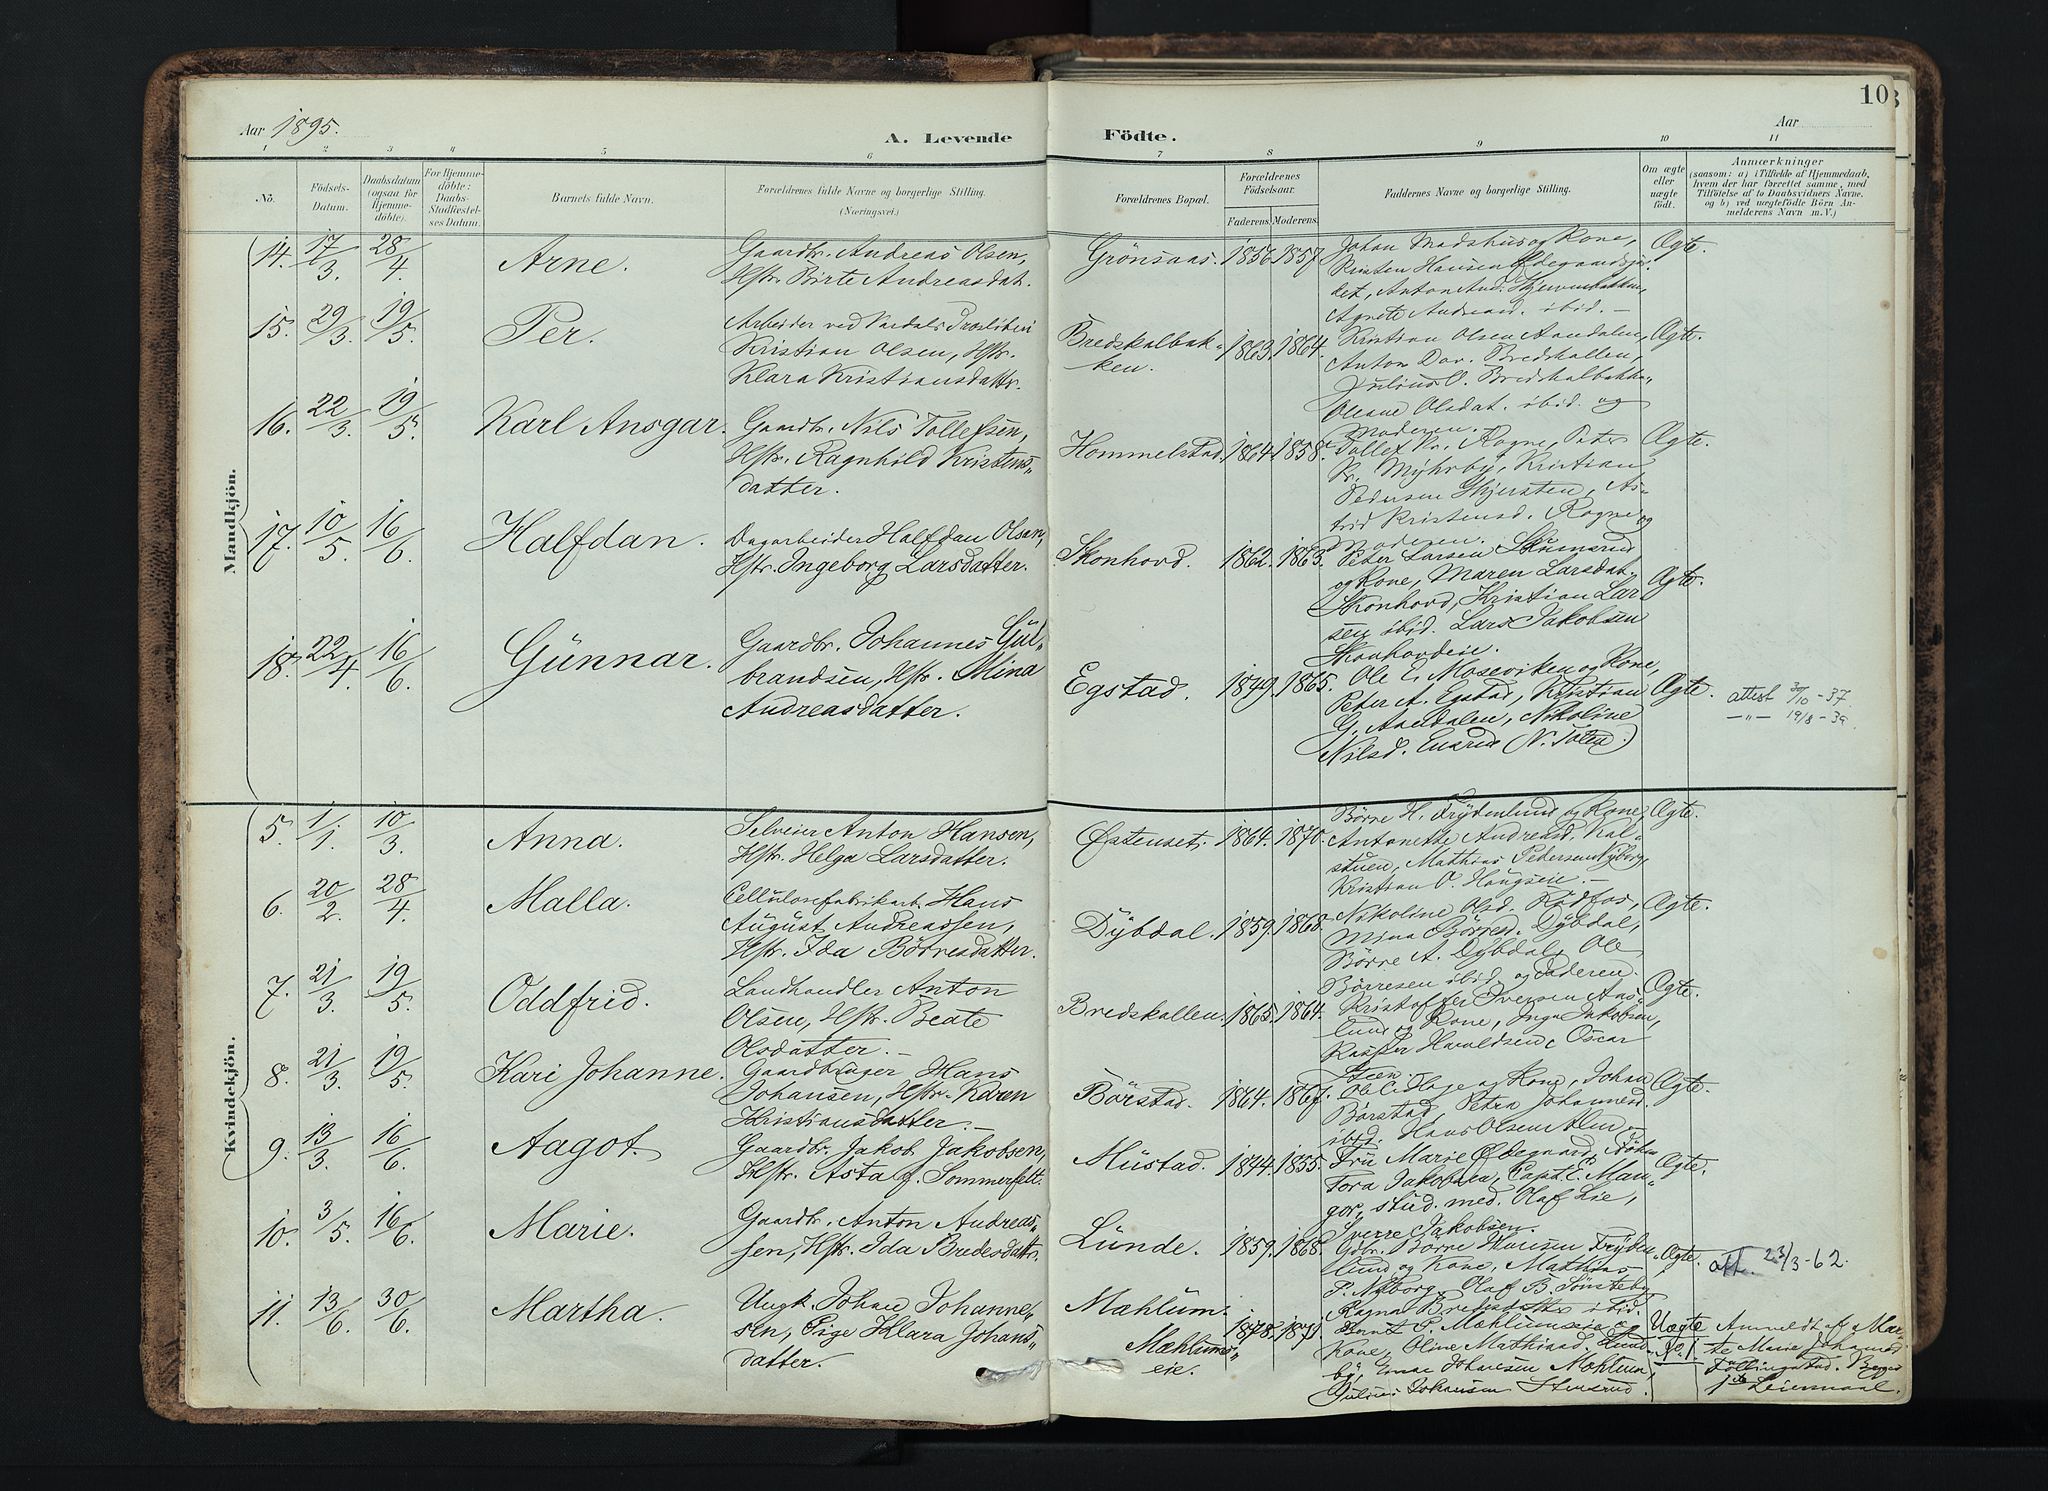 10
Aar 1895.
A. Levende
Födte.
Aar
1 2 3 4 5 6 7 8 9 10 11
No.
Födsels-
Datum.
Daabsdatum
(ogsaa for
Hjemme-
döbte).
For Hjemme-
döbte:
Daabs-
Stadfæstel-
ses Datum.
Barnets fulde Navn.
Forældrenes fulde Navne og borgerlige Stilling.
(Næringsvei.)
Forældrenes Bopæl.
Forældrenes
Födselsaar.
Faderens.
Moderens.
Faddernes Navne og borgerlige Stilling.
Om ægte
eller
uægte
födt.
Anmærkninger
(saasom: a) i Tilfælde af Hjemmedaab,
hvem der har forrettet samme, med
Tilföielse af to Daabsvidners Navne.
og b) ved uægtefödte Börn An-
melderens Navn m. V.)
Mandkjön.
14. 17/3. 28/4 Arne.
Gaardbr. Andreas Olsen,
Hstr. Birte Andreasdat.
Grönsaas. 1856. 1857.
Johan Madshus og Kone,
Kristen Hansen
Agnete Andreasd. ibid. –
Ægte.
15. 29/3. 19/5. Per.
Arbeider ved Vardals
Kristian Olsen, Hstr.
Klara Kristiansdattr.
Bredskalbak-
ken.
1863. 1864.
Kristian Olsen Aandalen,
Anton Bredskallen,
Julius O. Bredskalbakken
Oleane Olsdat. ibid. og
Moderen.
Ægte.
16. 22/3. 19/5. Karl Ansgar.
Gaardbr. Nils Tollefsen,
Hstr. Ragnhild Kristens-
datter.
Hommelstad. 1864. 1858.
Tollef Kr. Rogne, Peter
Kr. Myhrby, Kristian
Pedersen Skjersten, As-
trid Kristensd. Rogne og
Moderen.
Ægte.
17. 10/5. 16/6 Halfdan.
Dagarbeider Halfdan Olsen,
Hstr. Ingeborg Larsdatter.
Skonhovd. 1862. 1863.
Peter Larsen
og Kone, Maren Larsdat.
Skonhovd, Kristian Lar-
sen ibid. Lars Jakobsen
Skonhovdeie.
Ægte.
18. 22/4. 16/6. Günnar.
Gaardbr. Johannes Gül-
brandsen, Hstr. Mina
Andreasdatter.
Egstad. 1849. 1865.
Ole E. Moseviken og Kone,
Peter A. Egstad, Kristian
G. Aandalen, Nikoline
Nilsd. (N. Toten.)
Ægte.
attest 30/10 - 37.
—"— 19/8 - 39.
Kvindekjön.
5. 1/1. 10/3. Anna.
Selveier Anton Hansen,
Hstr. Helga Larsdatter.
Østenset. 1864. 1870.
Børre H. Frydenlund og Kone,
Antonette Andreasd. Kal-
stuen, Mathias Pedersen Nyborg,
Kristian O. Haugseie. –
Ægte.
6. 20/2. 28/4 Malla.
Cellulosefabrikarb. Hans
August Andreassen,
Hstr. Ida Børresdatter.
Dybdal. 1859. 1868.
Nikoline Olsd. Rødfos,
Mina Børresd. Dybdal,
Børre A. Dybdal, Ole
Børresen ibid. og Faderen.
Ægte.
7. 21/3. 19/5. Oddfrid.
Landhandler Anton
Olsen, Hstr. Beate
Olsdatter. –
Bredskallen. 1865. 1864.
Kristoffer Iversen Aas-
lund og Kone, Inga Jakobsen,
Kasper Haraldsen, Oscar
Steen.
Ægte.
8. 21/3. 19/5. Kari Johanne.
Gaardbruger Hans
Johansen, Hstr. Karen
Kristiansdatter. –
Børstad. 1864. 1867.
Ole C. Hage og Kone, Johan
Børstad, Petra Johannesd.
ibid. Hans Olsen Alm –
Ægte.
9. 13/3. 16/6. Aagot.
Gaardbr. Jakob Jakobsen,
Hstr. Asta f. Sommerfelt.
Müstad. 1844. 1855.
Fru Marie Ødegaard, Frøken
Tora Jakobsen, Capt. E. Man-
gor, stud. med. Olaf Lie,
Sverre Jakobsen.
Ægte.
10. 3/5. 16/6. Marie.
Gaardbr. Anton Andreas-
sen, Hstr. Ida Bredesdattr.
Lünde. 1859. 1868.
Gdbr. Børre Hansen Fryden-
lund og Kone, Mathias
P. Nyborg, Olaf B. Sønsteby,
Ragna Bredesdattr ibid.
Ægte.
att. 23/3-62.
11. 13/6. 30/6. Martha.
Ungk. Johan Johanne-
sen, Pige Klara Johans-
datter.
Mæhlum.
Mæhlums-
eie.
1878. 1871.
P. Mæhlumseie og
Kone, Oline Mathiasd. Lund-
by, Johansen Mæhlum,
Julius Johansen Stensrud.
Uægte
No. 1
Anmeldt af Mar-
te Marie Johannesd.
Begges
1ste Leiermaal.